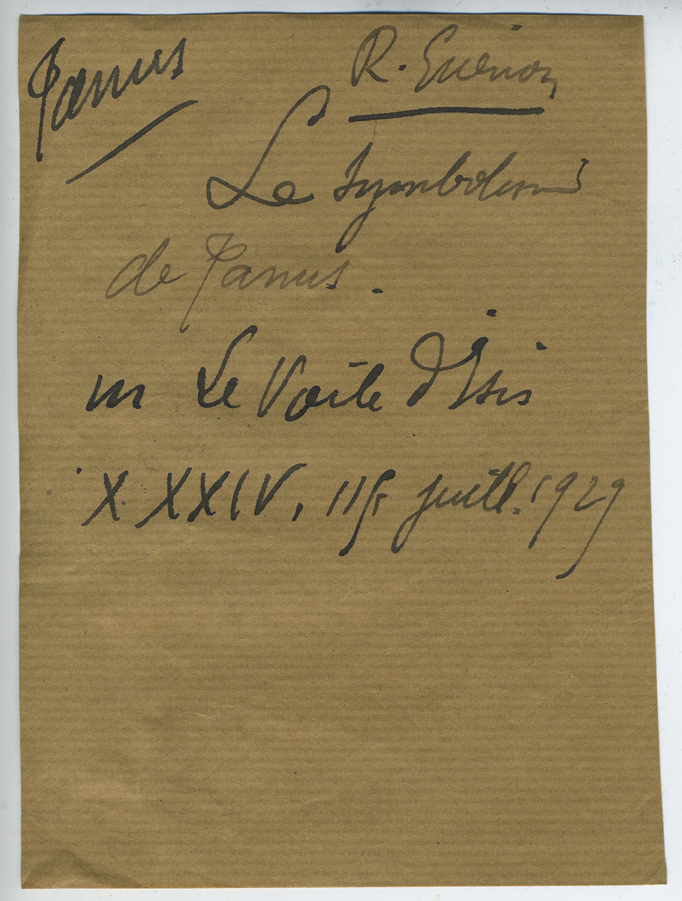 Janus
R. Guénon
Le Symbolisme
de Janus.
in Le Voile d'Isis
XXXIV, 115 juill. 1929